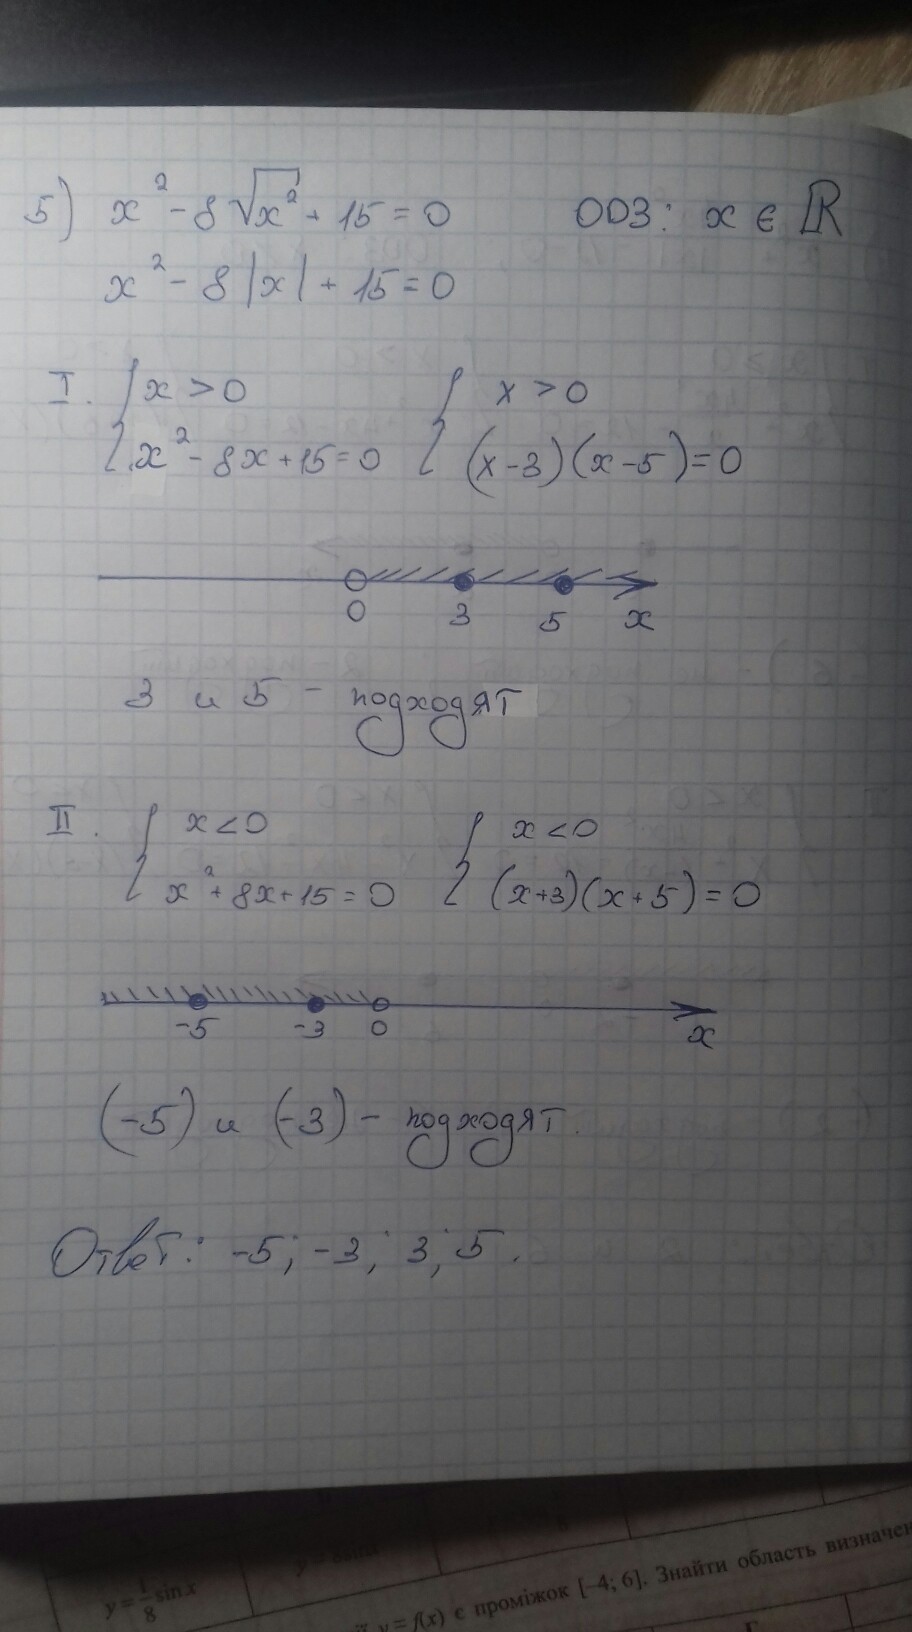 5) x² - 8√x² + 15 = 0 ОДЗ: x ∈ ℝ
x² - 8|x| + 15 = 0
I. { x > 0 { x > 0
x² - 8x + 15 = 0 (x - 3)(x - 5) = 0
0 3 5 x
3 и 5 - подходят
II. { x < 0 { x < 0
x² + 8x + 15 = 0 (x+3)(x+5) = 0
-5 -3 0 x
(-5) и (-3) - подходят.
Ответ: -5; -3; 3; 5.
y = 1/8 sin x
y = f(x) є проміжок [–4; 6]. Знайти область